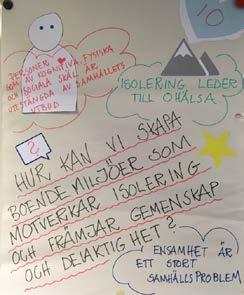 10
PERSONER
SOM AV KOGNITIVA, FYSISKA
OCH SOCIALA SKÄL ÄR
UTESTÄNGDA AV SAMHÄLLETS
UTBUD
ISOLERING LEDER
TILL OHÄLSA
?
HUR KAN VI SKAPA
BOENDEMILJÖER SOM
MOTVERKAR ISOLERING
OCH FRÄMJAR GEMENSKAP
OCH DELAKTIGHET?
ENSAMHET ÄR
ETT STORT
SAMHÄLLSPROBLEM